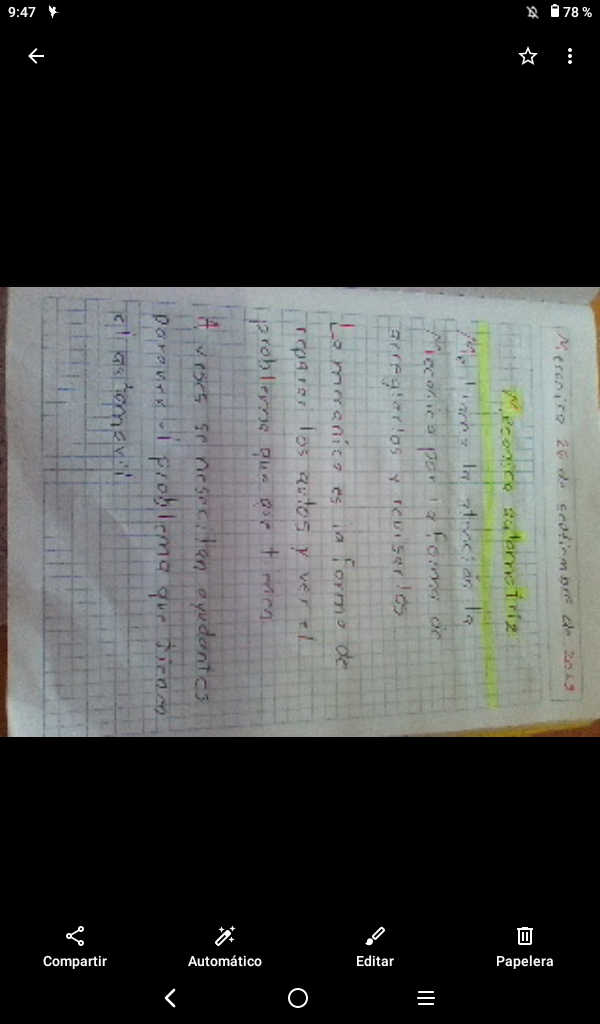 9:47
78 %
Miercoles 26 de septiembre de 2023
Mecanica automotriz
Me llama la atención la
Mecanica por la forma de
arreglarlos y revisarlos
La mecanica es la forma de
reparar los autos y ver el
problema que
A veses se nesecitan ayudantes
para ver el problema que tienen
el automovil
Compartir
Automático
Editar
Papelera